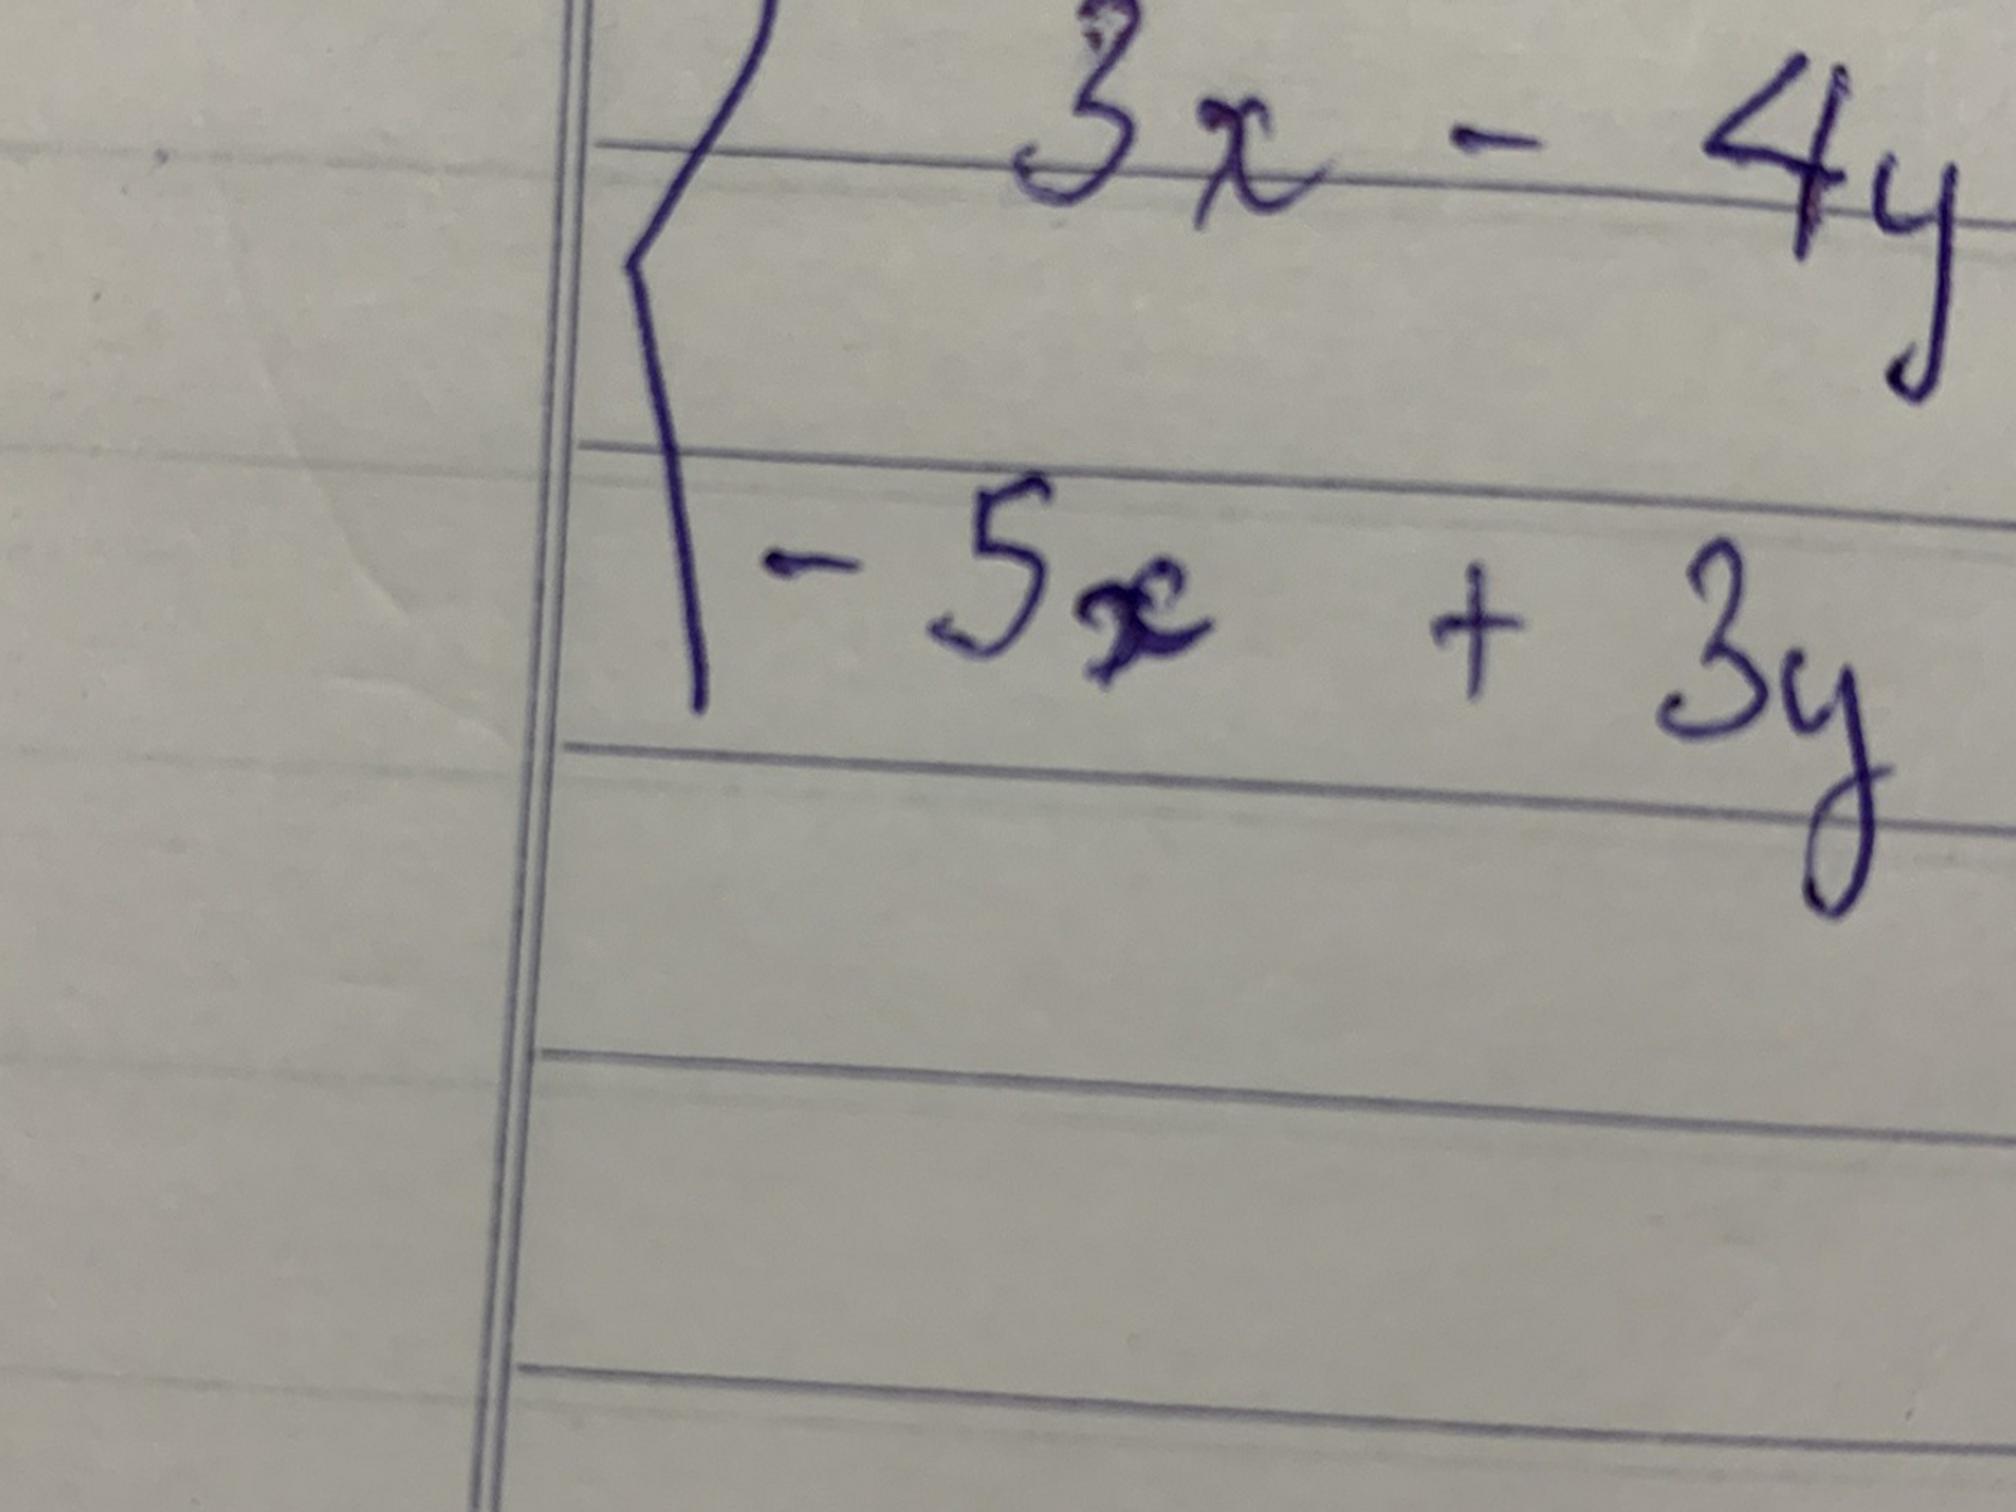 3x - 4y
- 5x + 3y